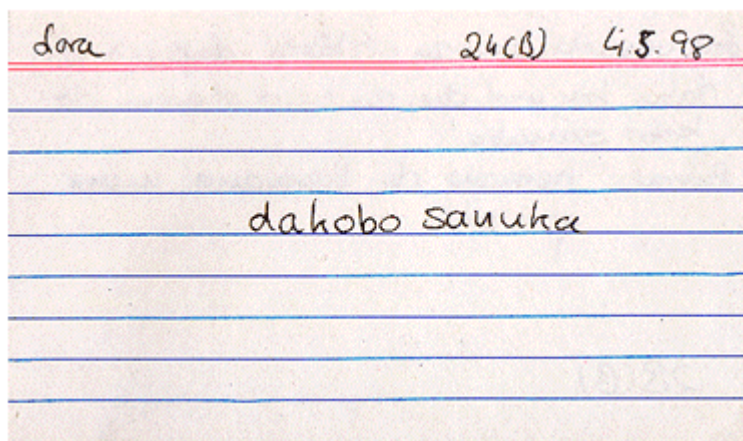 Lora 24(B) 4.5.98
dakobo sanuka